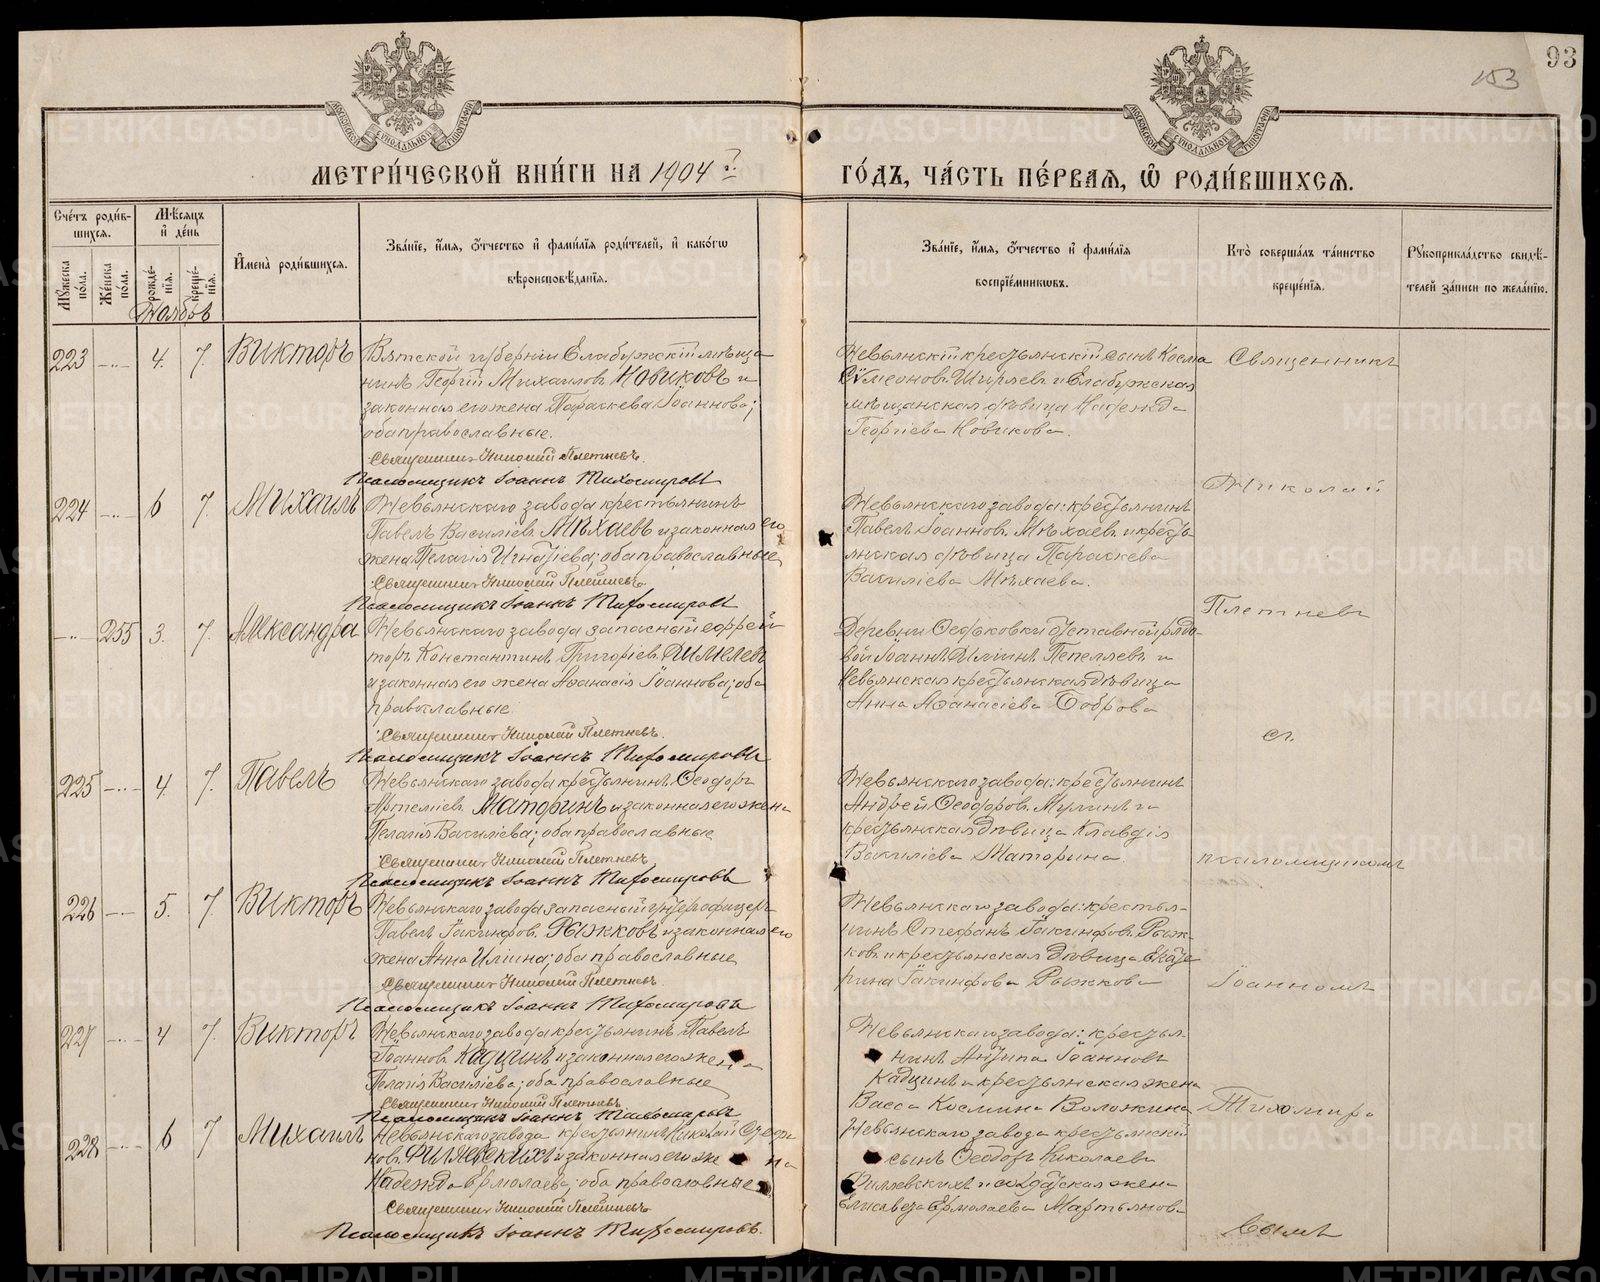 93
153
МЕТРИ́ЧЕСКОЙ КНИ́ГИ НА 1904 ГО́ДЪ, ЧА́СТЬ ПЕ́РВАЯ, Ѽ РОДИ́ВШИХСЯ.
Сче́тъ роди́в-
шихся.
Му́жеска по́ла.
Же́нска по́ла.
Мѣ́сяцъ и҆ де́нь
рожде́нїя.
креще́нїя.
И҆мена̀ роди́вшихся.
Зва́нїе, и҆́мя, ѻ҆́тчество и҆ фами́лїя роди́телей, и҆ како́гѡ
вѣроисповѣ́данїя.
Зва́нїе, и҆́мя, ѻ҆́тчество и҆ фами́лїя
воспрїе́мникѡвъ.
Кто̀ соверша́лъ та́инство
креще́нїя.
Рꙋкоприкла́дство свидѣ́-
телей за́писи по жела́нїю.
Ноябрь
223 4. 7. Викторъ
Вятской губерніи Елабужскій мѣща
нинъ Георгій Михаиловъ Новиковъ и
законная его жена Параскева Іоаннова;
оба православные.
Священникъ Николай Плетневъ.
Псаломщикъ Іоаннъ Тихомировъ
Невьянскій крестьянскій сынъ Косма
Сѵмеоновъ Ширяевъ и Елабужская
мѣщанская дѣвица Надежда
Георгіева Новикова.
224 6 7. Михаилъ
Невьянскаго завода крестьянинъ
Павелъ Василіевъ Мѣхаевъ и законная его
жена Пелагія Игнатіева; оба православные
Священникъ Николай Плетневъ
Псаломщикъ Іоаннъ Тихомировъ
Невьянскаго завода: крестьянинъ
Павелъ Іоанновъ Мѣхаевъ и кресть
янская дѣвица Параскева
Василіева Мѣхаева.
255 3. 7. Александра
Невьянскаго завода запасный ефрей
торъ Константинъ Григоріевъ
и законная его жена Аѳанасія Іоаннова; оба
православные
Священникъ Николай Плетневъ.
Псаломщикъ Іоаннъ Тихомировъ
Деревни Ѳедьковки отставной рядо
вой Іоаннъ Пепеляевъ и
Невьянская крестьянская дѣвица
Анна Аѳанасіева Боброва
225 4. 7. Павелъ
Невьянскаго завода крестьянинъ Ѳеодоръ
Артеміевъ Маторинъ и законная его жена
Пелагія Василіева; оба православные
Священникъ Николай Плетневъ
Псаломщикъ Іоаннъ Тихомировъ
Невьянскаго завода: крестьянинъ
Андрей Ѳеодоровъ и
крестьянская дѣвица Клавдія
Василіева Маторина.
226 5. 7. Викторъ
Невьянскаго завода запасный унтерофицеръ
Павелъ Іакинфовъ Рыжковъ и законная его
жена Анна Иліина; оба православные
Священникъ Николай Плетневъ.
Псаломщикъ Іоаннъ Тихомировъ
Невьянскаго завода: крестья-
нинъ Стефанъ Іакинфовъ Рыж-
ковъ и крестьянская дѣвица Екате
рина Іакинфова Рыжкова
227 4 7. Викторъ
Невьянскаго завода крестьянинъ Павелъ
Іоанновъ Кадцинъ и законная его жена
Пелагія Василіева; оба православные
Священникъ Николай Плетневъ
Псаломщикъ Іоаннъ Тихомировъ
Невьянскаго завода: крестья-
нинъ Антипа Іоанновъ
Кадцинъ и крестьянская жена
Васса Космина Воложина
228 6 7 Михаилъ
Невьянскаго завода крестьянинъ Николай
и законная его жена
Надежда Ермолаева; оба православные
Священникъ Николай Плетневъ
Псаломщикъ Іоаннъ Тихомировъ.
Невьянскаго завода крестьянскій
сынъ Ѳеодоръ Николаевъ
и солдатская жена
Елисавета Ермолаева Мартьянова
Священникъ
Николай
Плетневъ
съ
псаломщикомъ
Іоанномъ
Тихомиро
вымъ